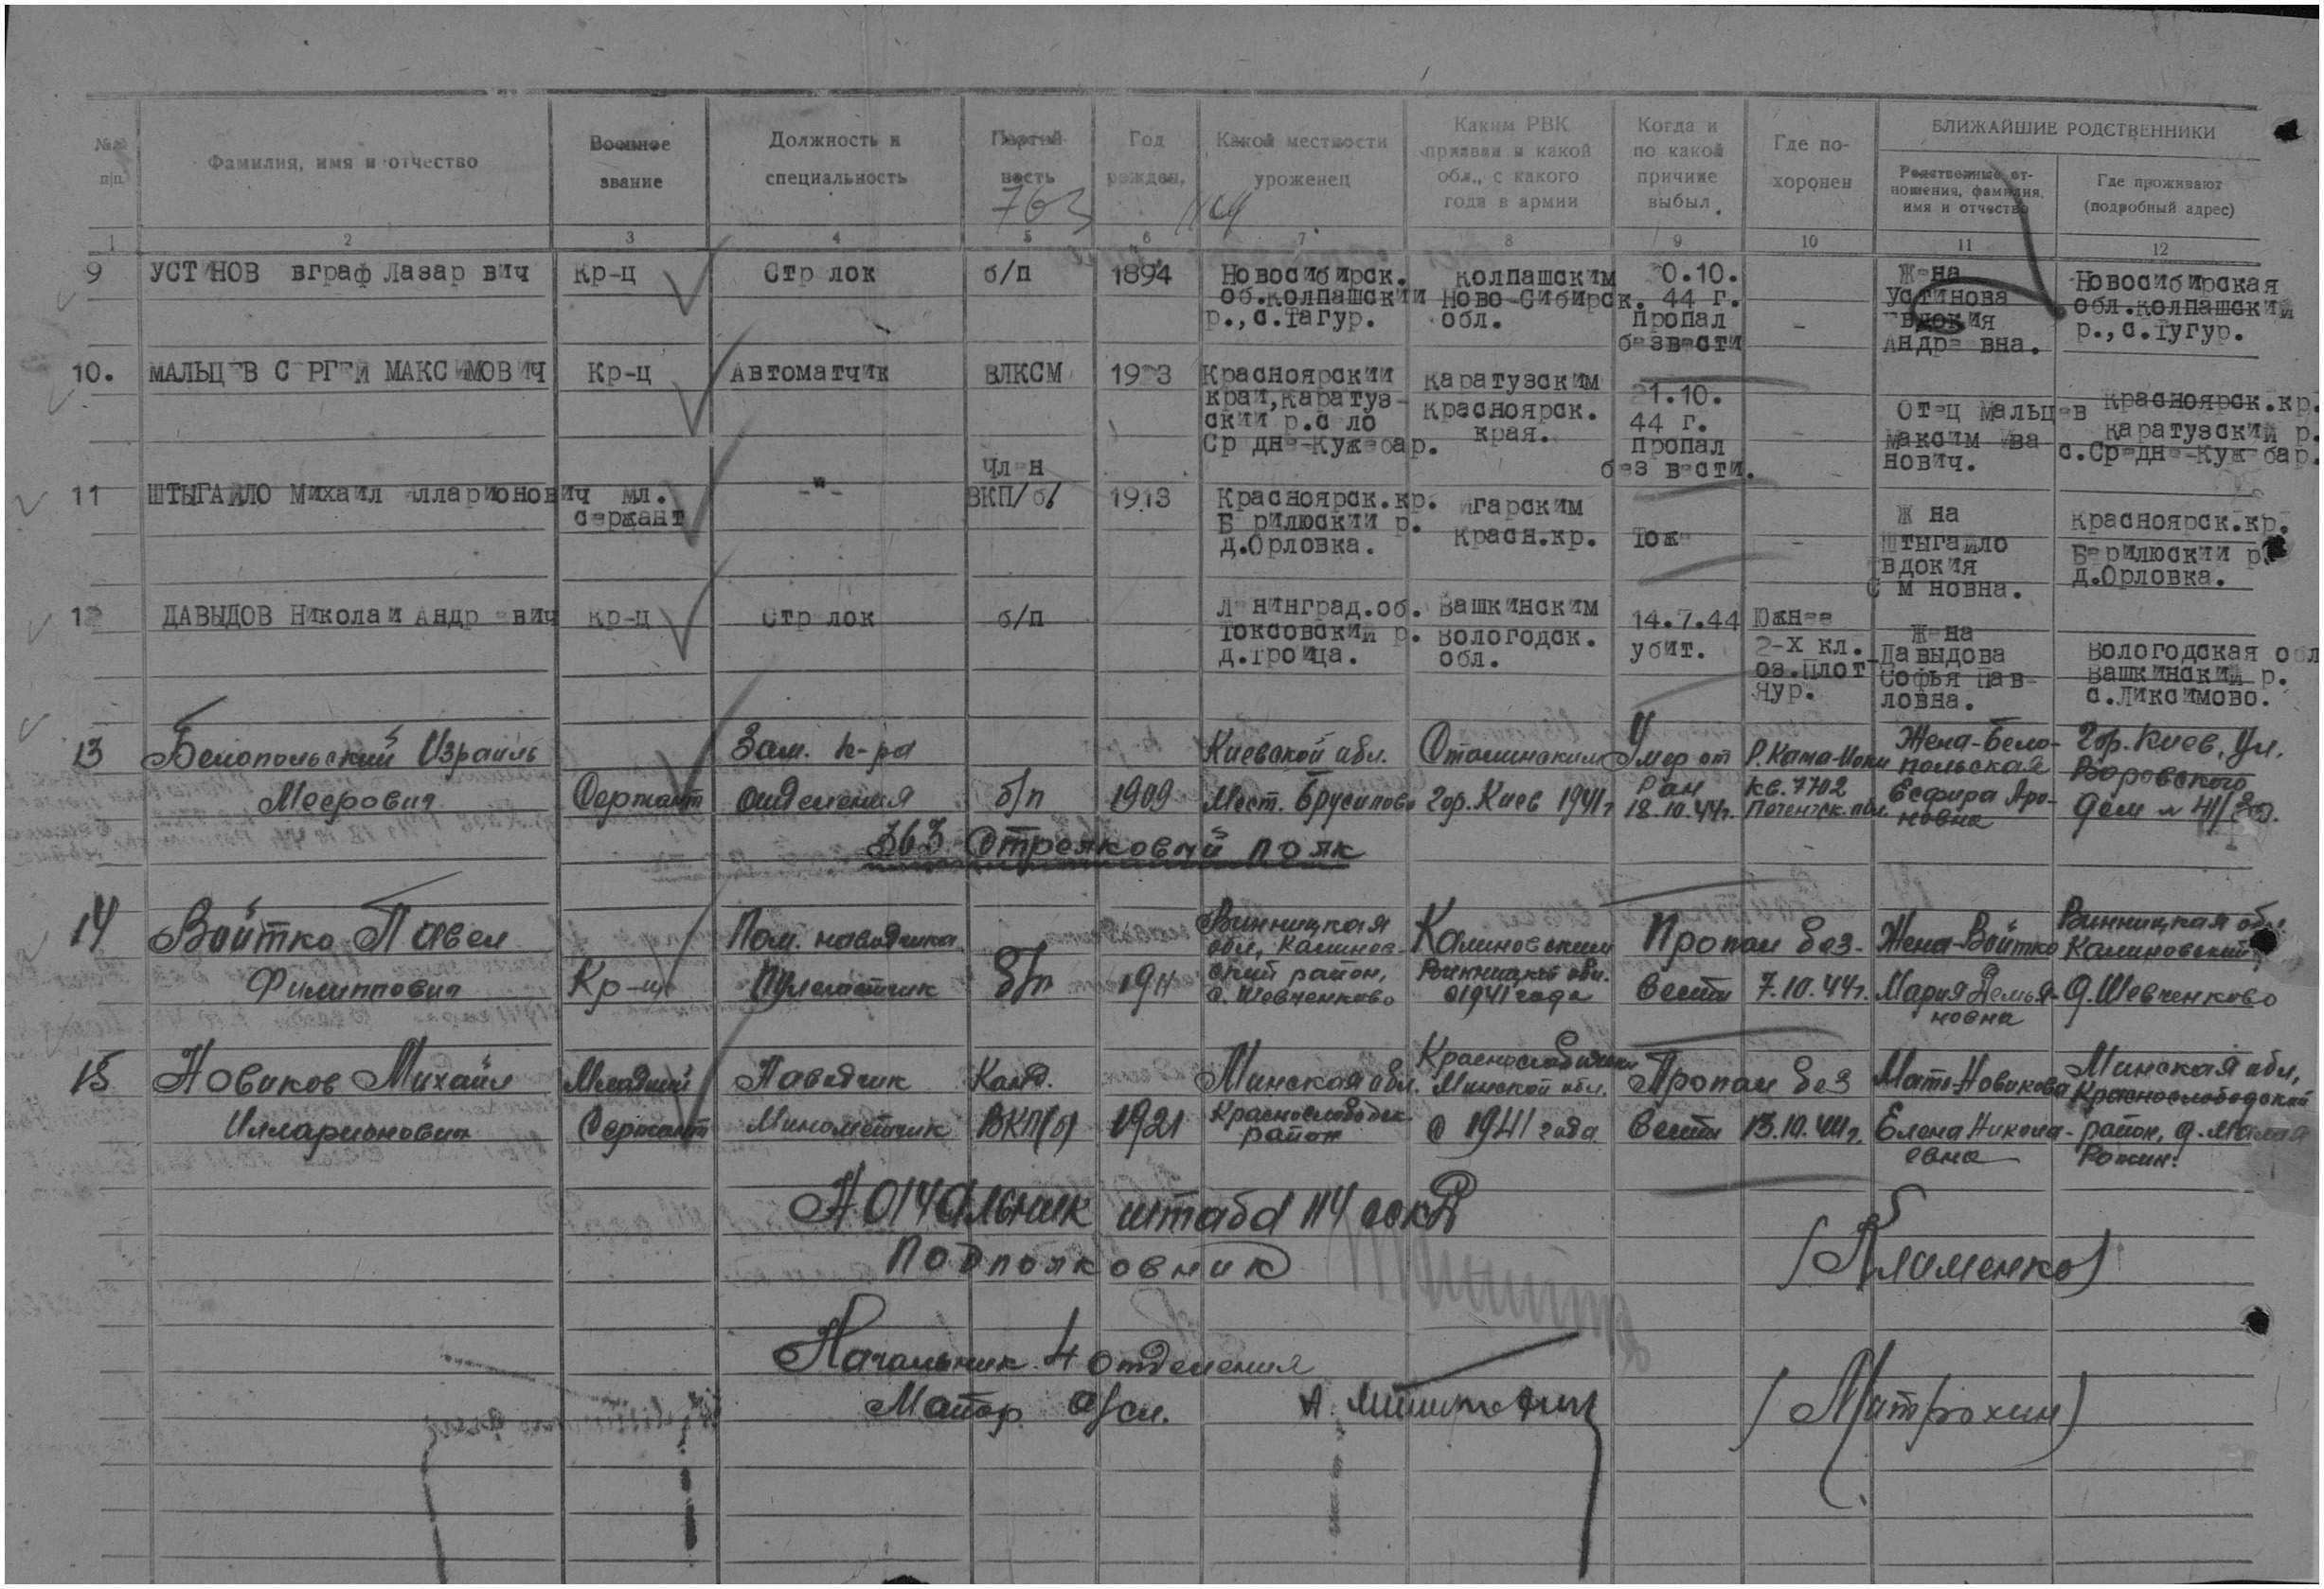 №№ п/п.
Фамилия, имя и отчество
Военное звание
Должность и специальность
Партийность
Год рожден.
Какой местности уроженец
Каким РВК призван и какой обл., с какого года в армии
Когда и по какой причине выбыл
Где похоронен
БЛИЖАЙШИЕ РОДСТВЕННИКИ
Родственные отношения, фамилия, имя и отчество
Где проживают (подробный адрес)
763
1 2 3 4 5 6 7 8 9 10 11 12
9 УСТИНОВ вграф Лазар вич Кр-ц Стр лок б/п 1894 Новосибирск. Колпашским 0.10. Жена Новосибирская
об.Колпашский Ново-Сибирск. 44 г. Устинова обл.Колпашский
р.,с.Тагур. обл. пропал - Евдокия р.,с.Тугур.
безвести Андре вна.
10. МАЛЬЦЕВ СЕРГЕЙ МАКСИМОВИЧ Кр-ц Автоматчик ВЛКСМ 1923 Красноярский Каратузским 21.10. Отец Мальцев Красноярск.кр.
край,Каратуз- Красноярск. 44 г. Максим Ива Каратузский р.
ский р.с ло края. пропал - нович. с.Средне-Кужебар.
Ср дне-Кужебар. без вести.
11 ШТЫГАЙЛО Михаил Илларионович мл. -"- Член 1913 Красноярск.кр. Игарским Ж на Красноярск.кр.
сержант ВКП/б/ Б рилюский р. Красн.кр. Тоже - Штыгайло Берилюский р.
д.Орловка. Евдокия д.Орловка.
С м новна.
12 ДАВЫДОВ Николай Андр евич Кр-ц Стр лок б/п Ленинград.об. Вашкинским 14.7.44 Южнее Жена Вологодская обл
Токсовский р. Вологодск. убит. 2-х кл. Давыдова Вашкинский р.
д.Троица. обл. оз.Плот- Софья Пав с.Ликсимово.
Яур. ловна.
13 Белопольский Израиль Зам. к-ра Киевской обл. Сталинским Умер от Жена-Бело- Гор. Киев, ул.
Меерович Сержант отделения б/п 1909 Мест. Брусилово гор. Киев 1941г Ран кв. 7702 польская Воровского
18.10.44г. Аро-новна
363 Стрелковый полк
14 Войтко Павел Пом. наводчика Винницкая Калиновским Пропал без- Жена-Войтко Винницкая обл.
Филиппович Кр-ц Пулеметчик б/п 1911 обл, Калинов- Винницкой обл. вести 7.10.44г. Мария Демья- Калиновский
ский район, с 1941 года новна д.Шевченково
с. Шевченково
15 Новиков Михаил Младший Наводчик Канд. Минская обл. Минской обл. Пропал без Мать-Новикова Минская обл,
Илларионович Сержант Минометчик ВКП(б) 1921 Краснослободск. с 1941 года вести 13.10.44г. Елена Никола- Краснослободский
район евна район, д.
Начальник штаба 114 сскд
Подполковник (Клименко)
Начальник 4 отделения
Майор а/сл. (Митрохин)